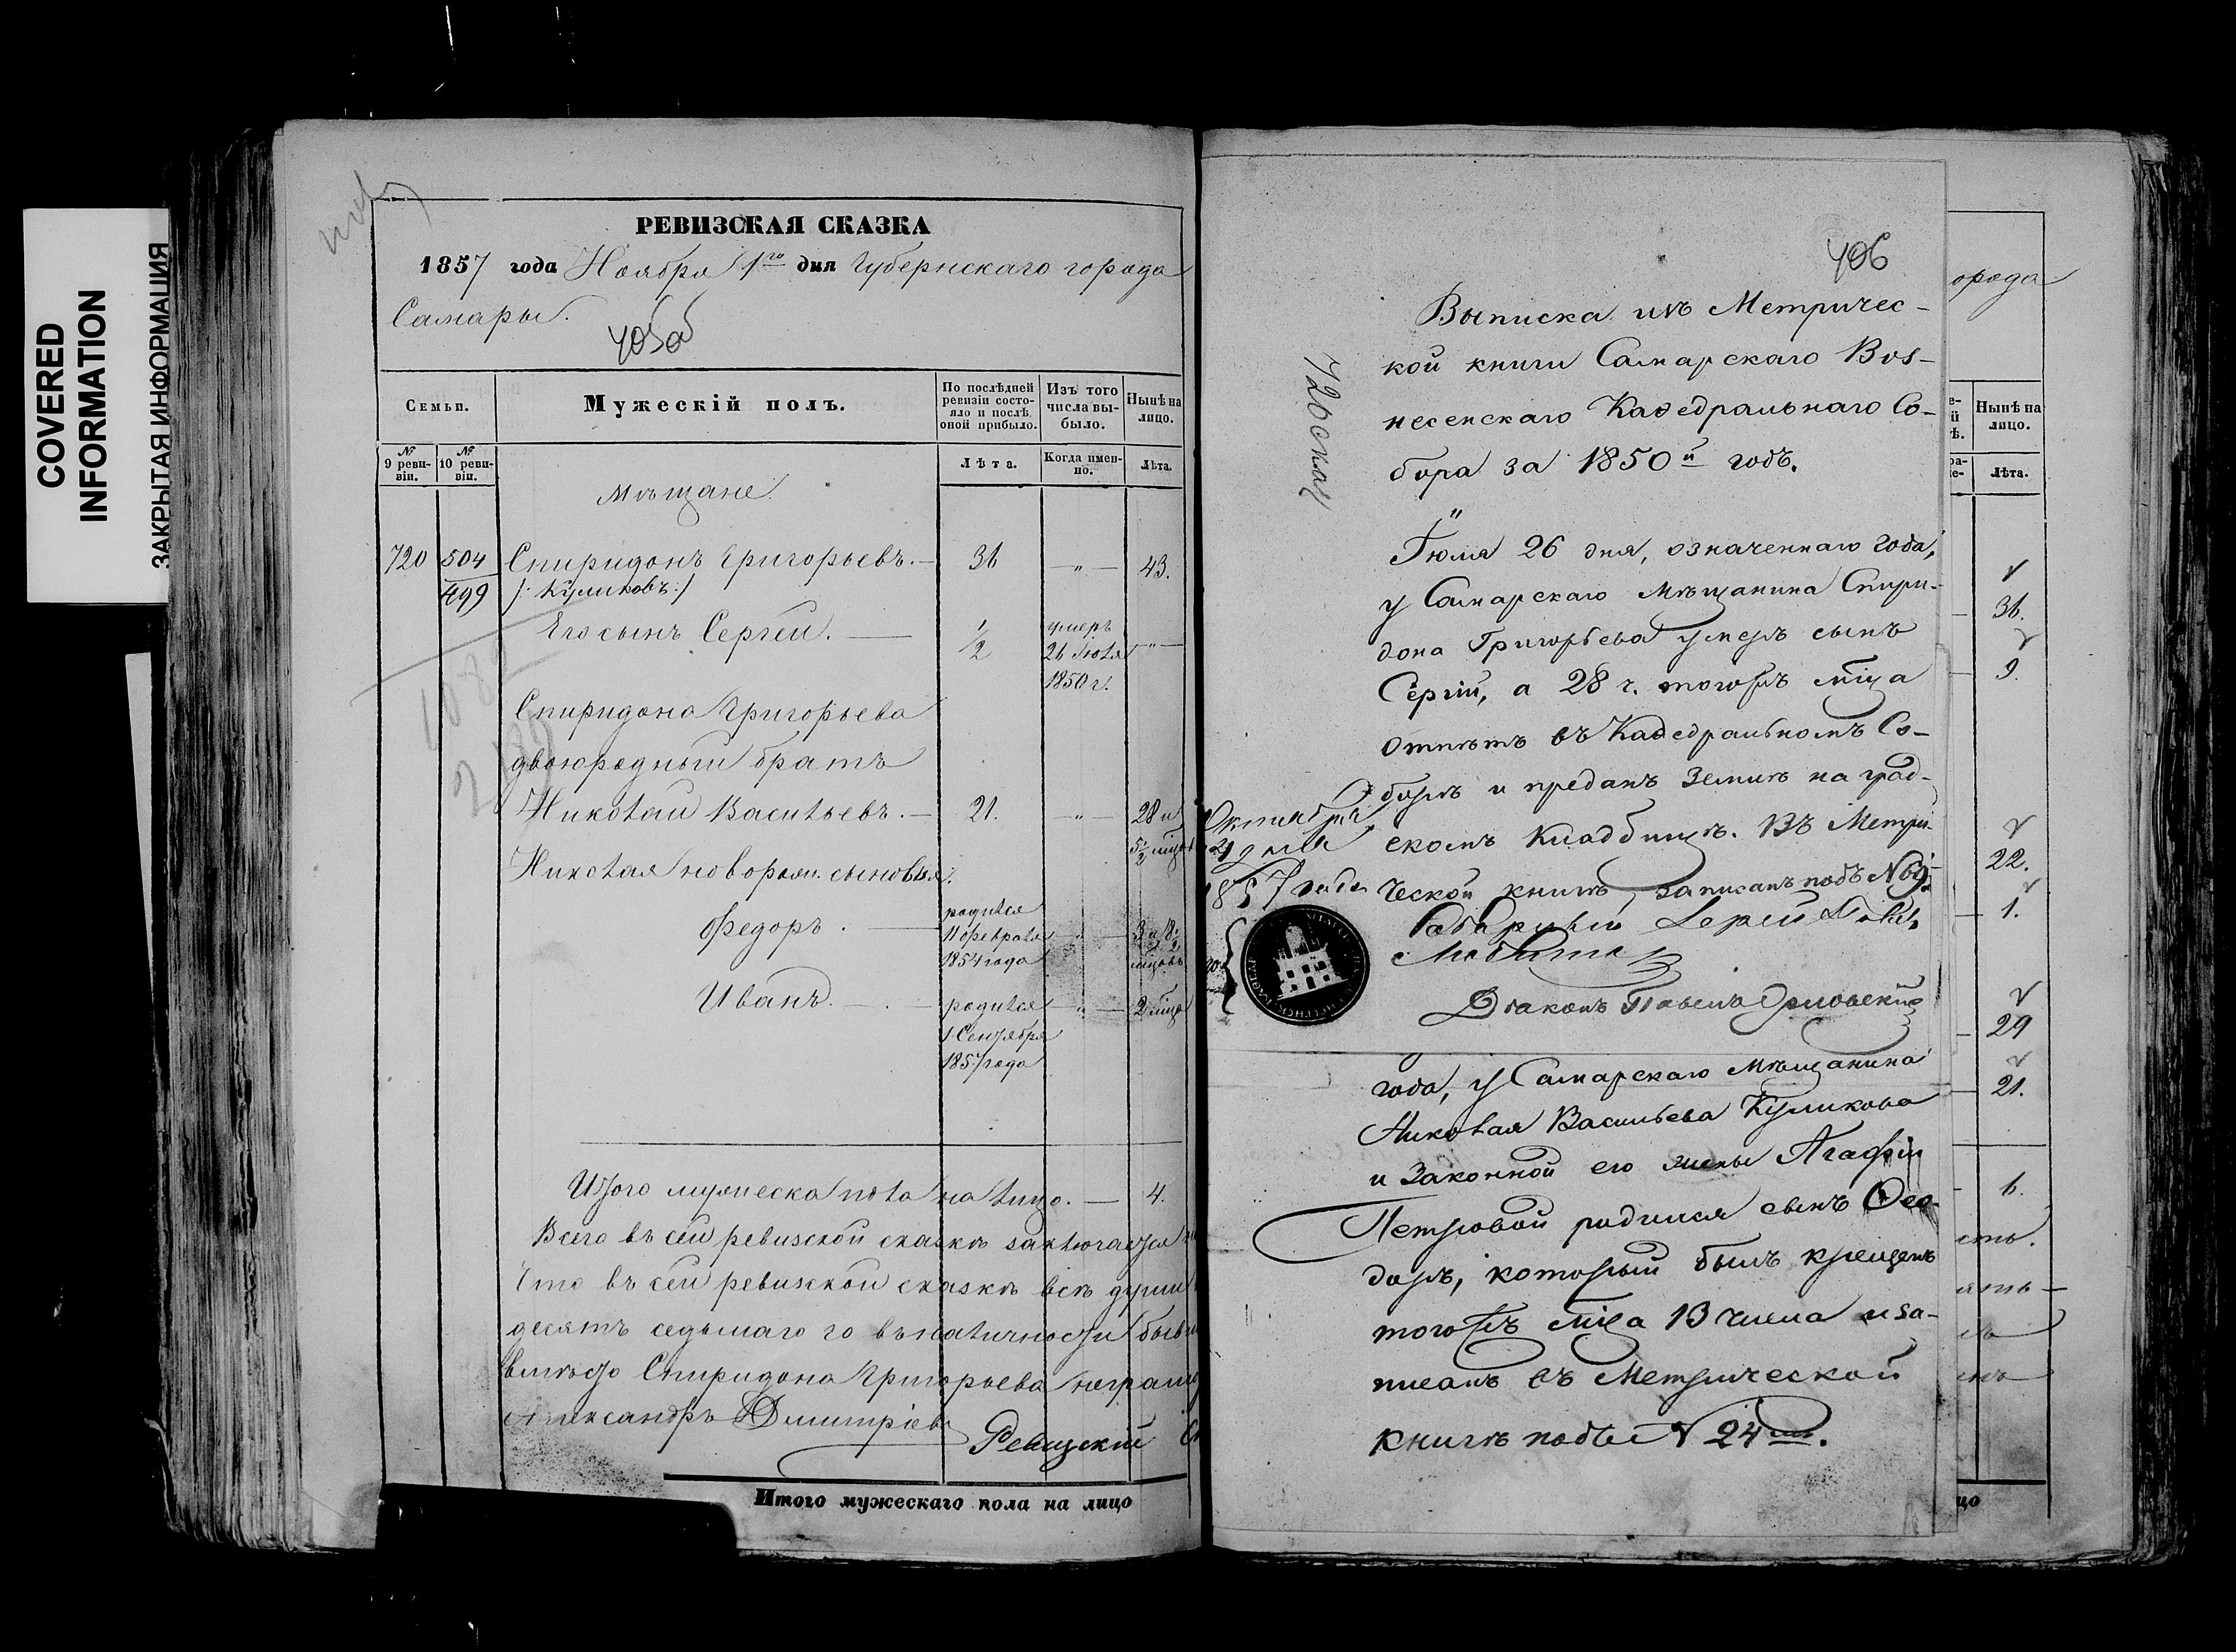 COVERED
INFORMATION
ЗАКРЫТАЯ ИНФОРМАЦИЯ
РЕВИЗСКАЯ СКАЗКА
1857 года Ноября 1го дня Губернскаго города
Самары.
405об
Семьи.
Мужескій полъ.
По послѣдней ревизіи состояло и послѣ оной прибыло.
Изъ того числа выбыло.
Нынѣ на лицо.
№ 9 ревизіи.
№ 10 ревизіи.
Лѣта.
Когда именно.
Лѣта.
Мѣщане.
720 504 Спиридонъ Григорьевъ. — 36 —"— 43.
499 /: Куликовъ :/
Его сынъ Сергей. — 1/2 умеръ 26 Іюля 1850 г. —"—
Спиридона Григорьева
двоюродный братъ
Николай Васильевъ. — 21. —"— 28 и
5 1/2 мцовъ
Николая новорожд. сыновья:
Федоръ. — родился 11 февраля 1854 года —"— 3 и 8 1/2 мцовъ
Иванъ. — родился 1 Сентября 1857 года —"— 2 мца
Итого мужеска пола на лицо. — 4.
Всего въ сей ревизской сказкѣ заключается
Что въ сей ревизской сказкѣ всѣ души
десять седьмаго го въ наличности бывш
вмѣсто Спиридона Григорьева неграм
Александръ Дмитріевъ
Итого мужескаго пола на лицо
406
720 скаж
Выписка изъ Метричес-
кой книги Самарскаго Воз-
несенскаго Каѳедральнаго Со-
бора за 1850й годъ.
Іюля 26 дня, означеннаго года,
у Самарскаго Мѣщанина Спири-
дона Григорьева умеръ сынъ
Сергій, а 28 ч. тогожъ мца
отпѣтъ въ Каѳедральномъ Со-
борѣ и преданъ землѣ на град-
скомъ Кладбищѣ. Въ Метри-
ческой книгѣ, записанъ подъ №
Октября
1857 года
Діаконъ Павелъ Орловскій
года, у Самарскаго Мѣщанина
Николая Васильева Куликова
и законной его жены Агафіи
Петровой родился сынъ Ѳео-
доръ, который былъ крещенъ
тогожъ мца 13 числа и за-
писанъ въ Метрической
книгѣ подъ № 24мъ.
орода
Нынѣ на лицо.
Лѣта.
36.
9.
22.
1.
29
21.
6.
цо